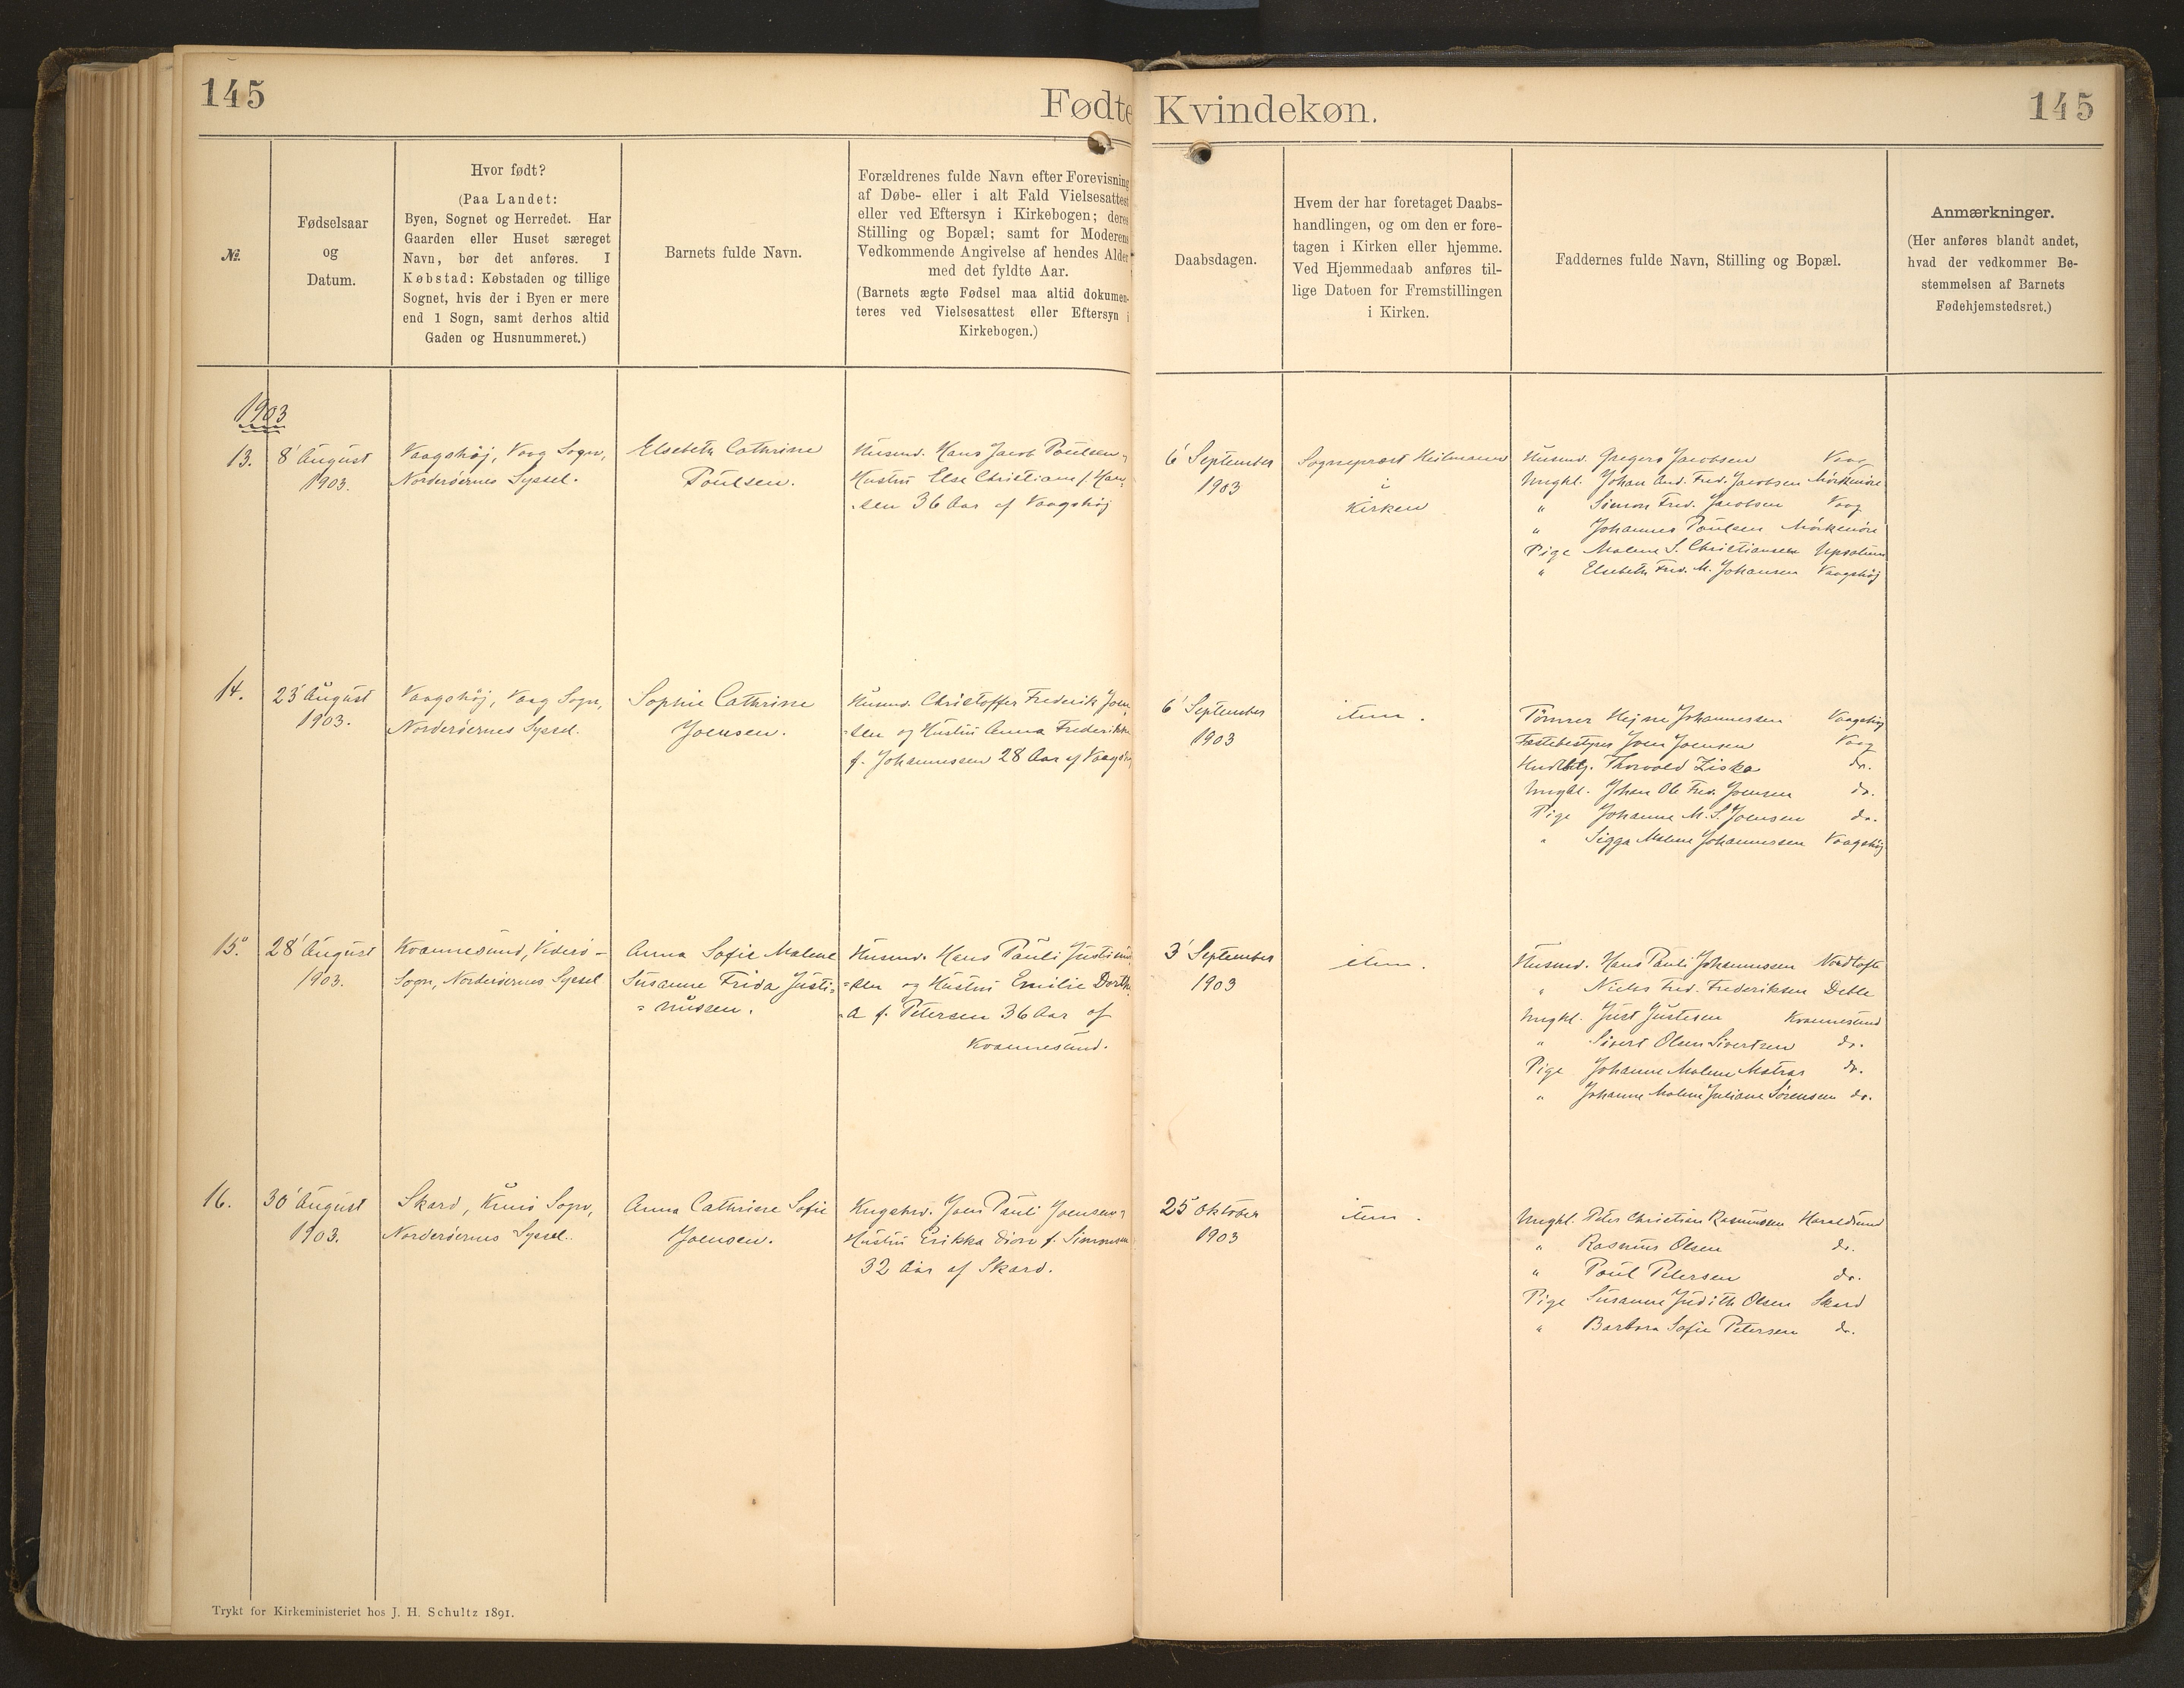 145
Fødte Kvindekøn.
145
№.
Fødselsaar
og
Datum.
Hvor født?
(Paa Landet:
Byen, Sognet og Herredet. Har
Gaarden eller Huset særeget
Navn, bør det anføres. I
Købstad: Købstaden og tillige
Sognet, hvis der i Byen er mere
end 1 Sogn, samt derhos altid
Gaden og Husnummeret.)
Barnets fulde Navn.
Forældrenes fulde Navn efter Forevisning
af Døbe- eller i alt Fald Vielsesattest
eller ved Eftersyn i Kirkebogen; deres
Stilling og Bopæl; samt for Moderens
Vedkommende Angivelse af hendes Alder
med det fyldte Aar.
(Barnets ægte Fødsel maa altid dokumen-
teres ved Vielsesattest eller Eftersyn i
Kirkebogen.)
Daabsdagen.
Hvem der har foretaget Daabs-
handlingen, og om den er fore-
tagen i Kirken eller hjemme.
Ved Hjemmedaab anføres til-
lige Datoen for Fremstillingen
i Kirken.
Faddernes fulde Navn, Stilling og Bopæl.
Anmærkninger.
(Her anføres blandt andet,
hvad der vedkommer Be-
stemmelsen af Barnets
Fødehjemstedsret.)
1903
13.
8' August
1903.
Vaagshøj, Vaag Sogn,
Norderøernes Syssel.
Elsebeth Cathrine
Poulsen.
Husmd. Hans Jacob Poulsen
Hustru Else Christiane f. Han-
sen 36 Aar af Vaagshøj
6' September
1903
Sognepræst Heilmann
i
Kirken
Husmd. Gregers Jacobsen Vaag
Ungkl. Johan And. Fred. Jacobsen Mörkenöre
" Simon Fred. Jacobsen Vaag
" Johannes Poulsen Mörkenöre
Pige Malene S. Christiansen
" Elsebeth Fred. M. Johansen Vaagshøj
14.
23' August
1903.
Vaagshøj, Vaag Sogn,
Norderøernes Syssel.
Sophie Cathrine
Joensen.
Husmd. Christoffer Frederik Joen-
sen og Hustru Anna Frederikke
f. Johannessen 28 Aar af Vaagshøj
6' September
1903
item.
Tømrer Hejne Johannessen Vaagshøj
Fæstebestyrer Joen Joensen Vaag
Hndlbtj. Thorvald Ziska do.
Ungkl. Johan Ole Fred. Joensen do.
Pige Johanne M. S. Joensen do.
" Sigga Malene Johannessen Vaagshøj
15.
28' August
1903.
Kvannesund, Viderö-
Sogn, Norderøernes Syssel.
Anna Sofie Malene
Susanne Frida Justi-
nussen.
Husmd. Hans Pauli Justinus-
sen og Hustru Emilie Dorth-
a f. Petersen 36 Aar af
Kvannesund.
3' September
1903
item.
Husmd. Hans Pauli Johannessen Nordtofte
" Niels Fred. Frederiksen Deble
Ungkl. Just Justesen Kvannesund
" Sivert Olsen Sivertsen do.
Pige Johanne Malene Matras do.
" Johanne Malene Juliane Sørensen do.
16.
30' August
1903.
Skard, Kunö Sogn,
Norderøernes Syssel.
Anna Cathrine Sofie
Joensen.
Kngshv. Joen Pauli Joensen
Hustru Erikka Dion f. Simonsen
32 Aar af Skard.
25' Oktober
1903
item.
Ungkl. Peter Christian Rasmussen Haraldsund
" Rasmus Olsen do.
" Poul Petersen do.
Pige Susanne Judith Olsen Skard
" Barbara Sofie Petersen do.
Trykt for Kirkeministeriet hos J. H. Schultz 1891.